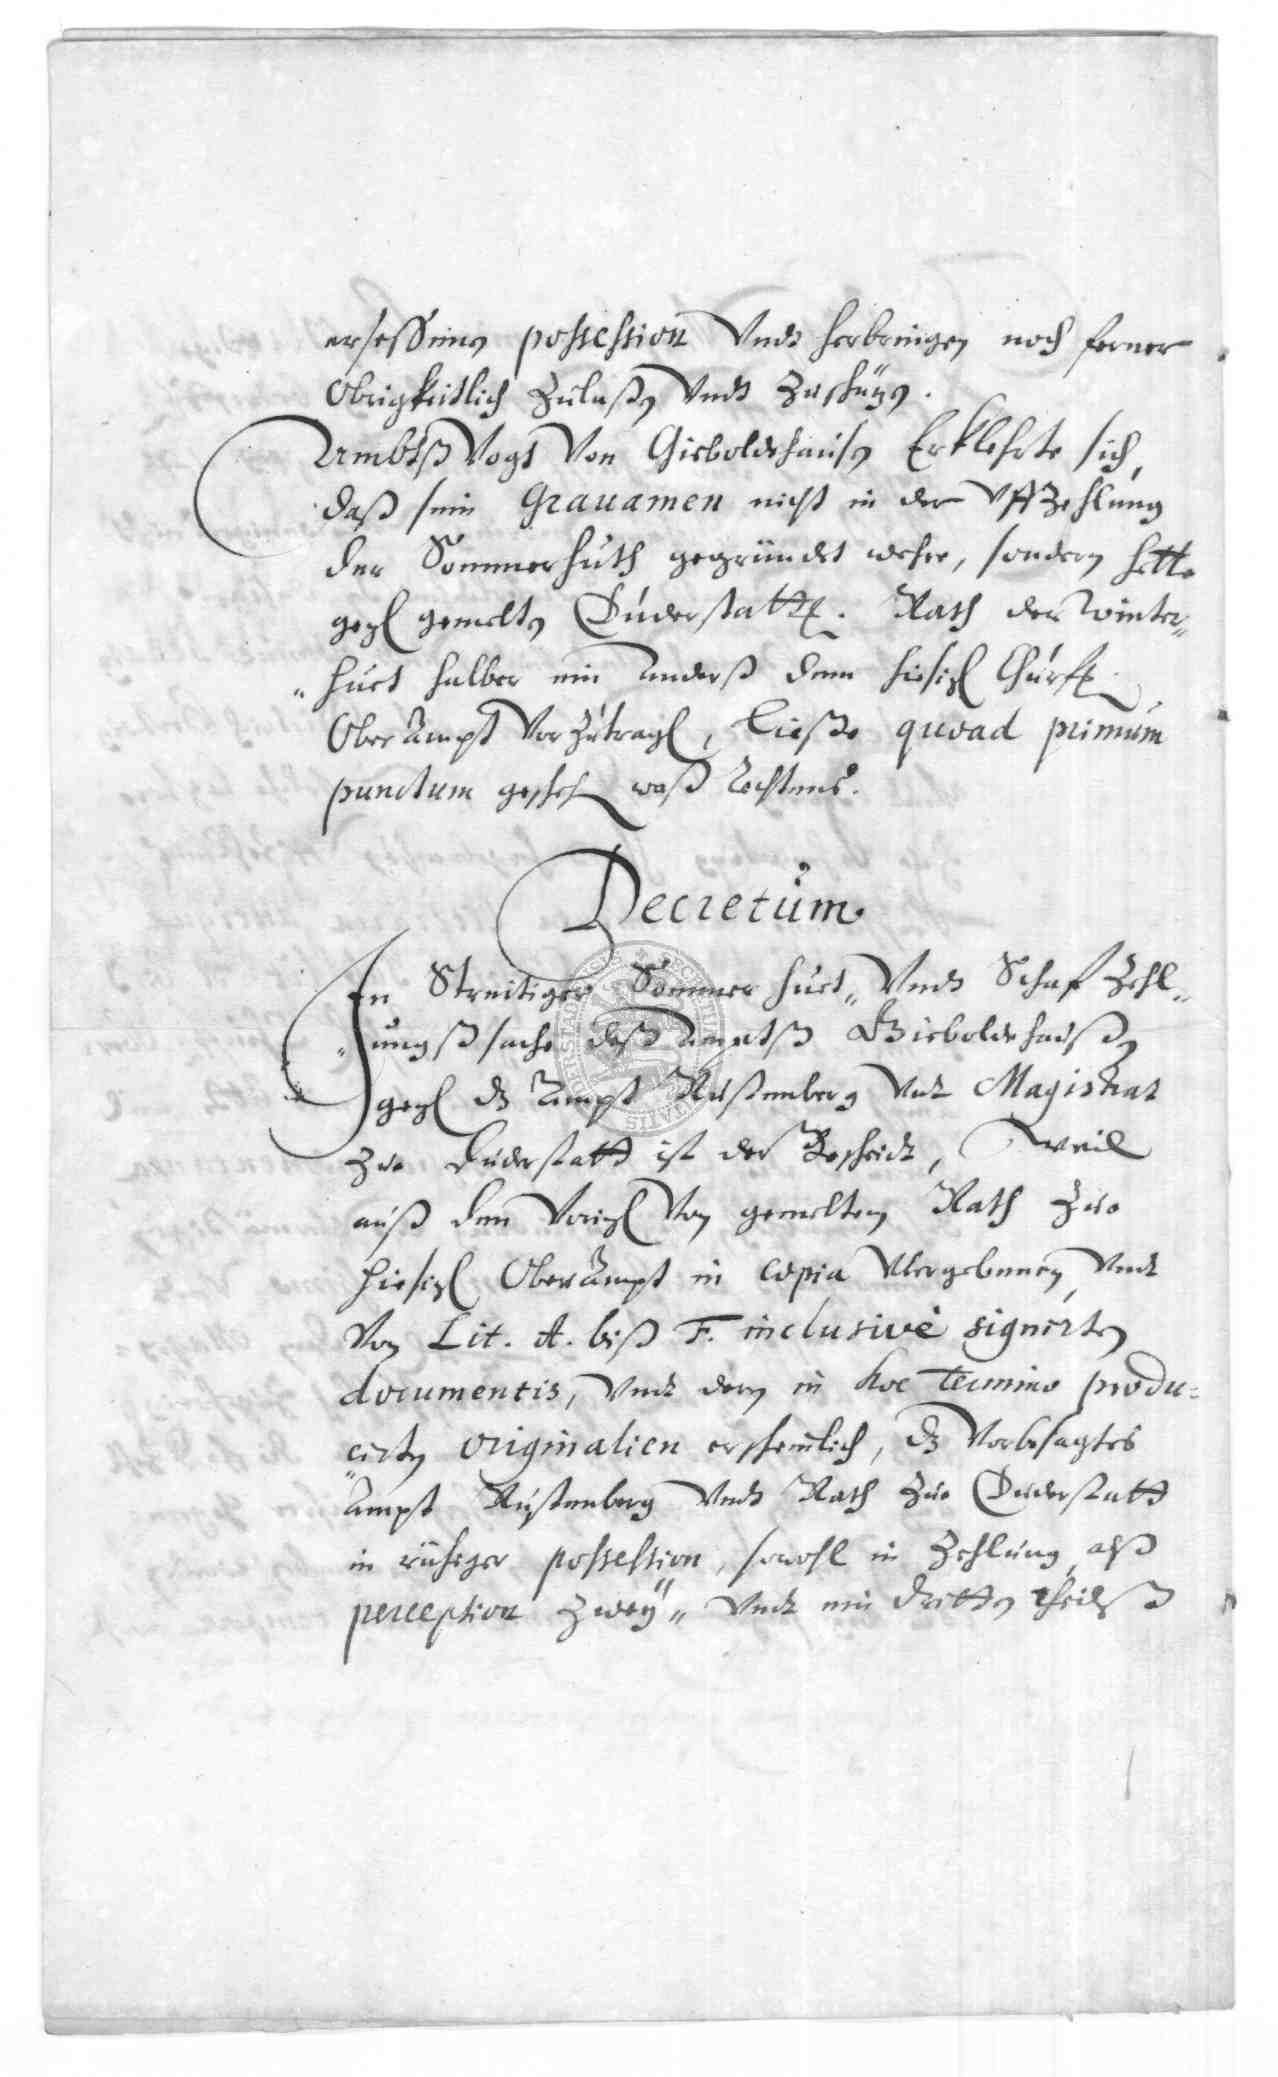 ersessenen possession Undt herbringen noch ferner
Obrigkeitlich Zulaßen Undt Zuschützen.
Ambtß Vogt Von Gieboldehausen Erklehrte sich,
daß sein Grauamen nicht in der Uffzehlung
der Sommerhuth gegründet wehre, sondern hette
gegen gemelten Duderstatt. Rath der Winter„
„huet halber ein Anderß dem hiesigen Churf.
Ober Ampt Vorzutragen, ließe quoad primum
punctum geschehen waß Rechtens.
Decretum
In Streitiger Sommer huet„ Undt Schaf Zehl„
„ungß sache deß Ampts Gieboldehaußen
gegen dz Ampt Rustenberg Undt Magistrat
Zue Duderstatt ist der Bescheidt, Weil
auß den Vorigen Von gemeltem Rath Zue
hiesigen Ober Ampt in copia Ubergebenen, Undt
Von Lit. A. biß F. inclusivè signirten
documentis, Undt dern in hoc Termino produ-
cirten originalien erscheinlich, dz Vorbesagtes
Ampt Rustenberg Undt Rath Zue Duderstatt
in ruhiger possession, sowohl in Zehlung, alß
perception Zwey„ Undt ein dritten theilß